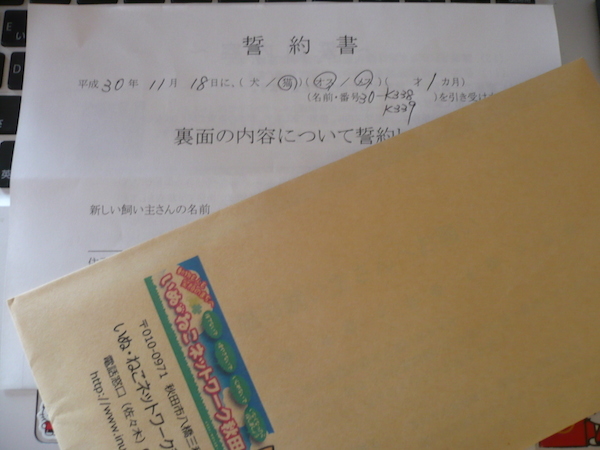 誓約書
平成30年11月18日に、(犬／猫)(オス／メス)(　才1カ月)
(名前・番号30-K338
K339
)を引き受け
裏面の内容について誓約し
新しい飼い主さんの名前
いぬ・ねこネットワーク秋田
〒010-0971 秋田市八橋三
いぬ・ねこネットワーク
電話窓口（佐々木）
http://www.inu